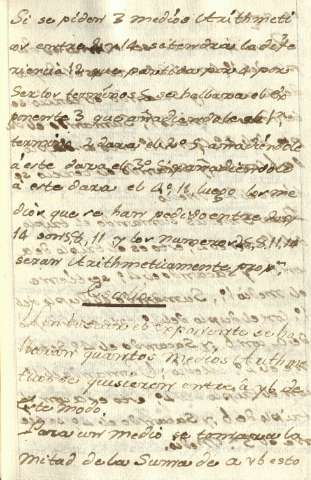 Si se piden 3 medios Arithmeti
cos entre 2 y 14 se tendra la dife
riencia 12 que partida por 4 por
ser los terminos 5 se hallara el ex
ponente 3 que añadiendole al 1º
termino 2 dara el 2º 5, añadiendole
à este dara el 3º 8, añadiendole
à este dara el 4º 11, luego los me
dios que se han pedido entre 2 y
14 son 5, 8, 11 y los numeros 2, 5, 8, 11, 14
seran Arithmeticamente prop.
Escolio
el exponente se ha
llaran quantos medios Arithme
ticos se quisieren entre a y b de
este modo.
Para un medio se tomara la
mitad de la suma de a y b esto